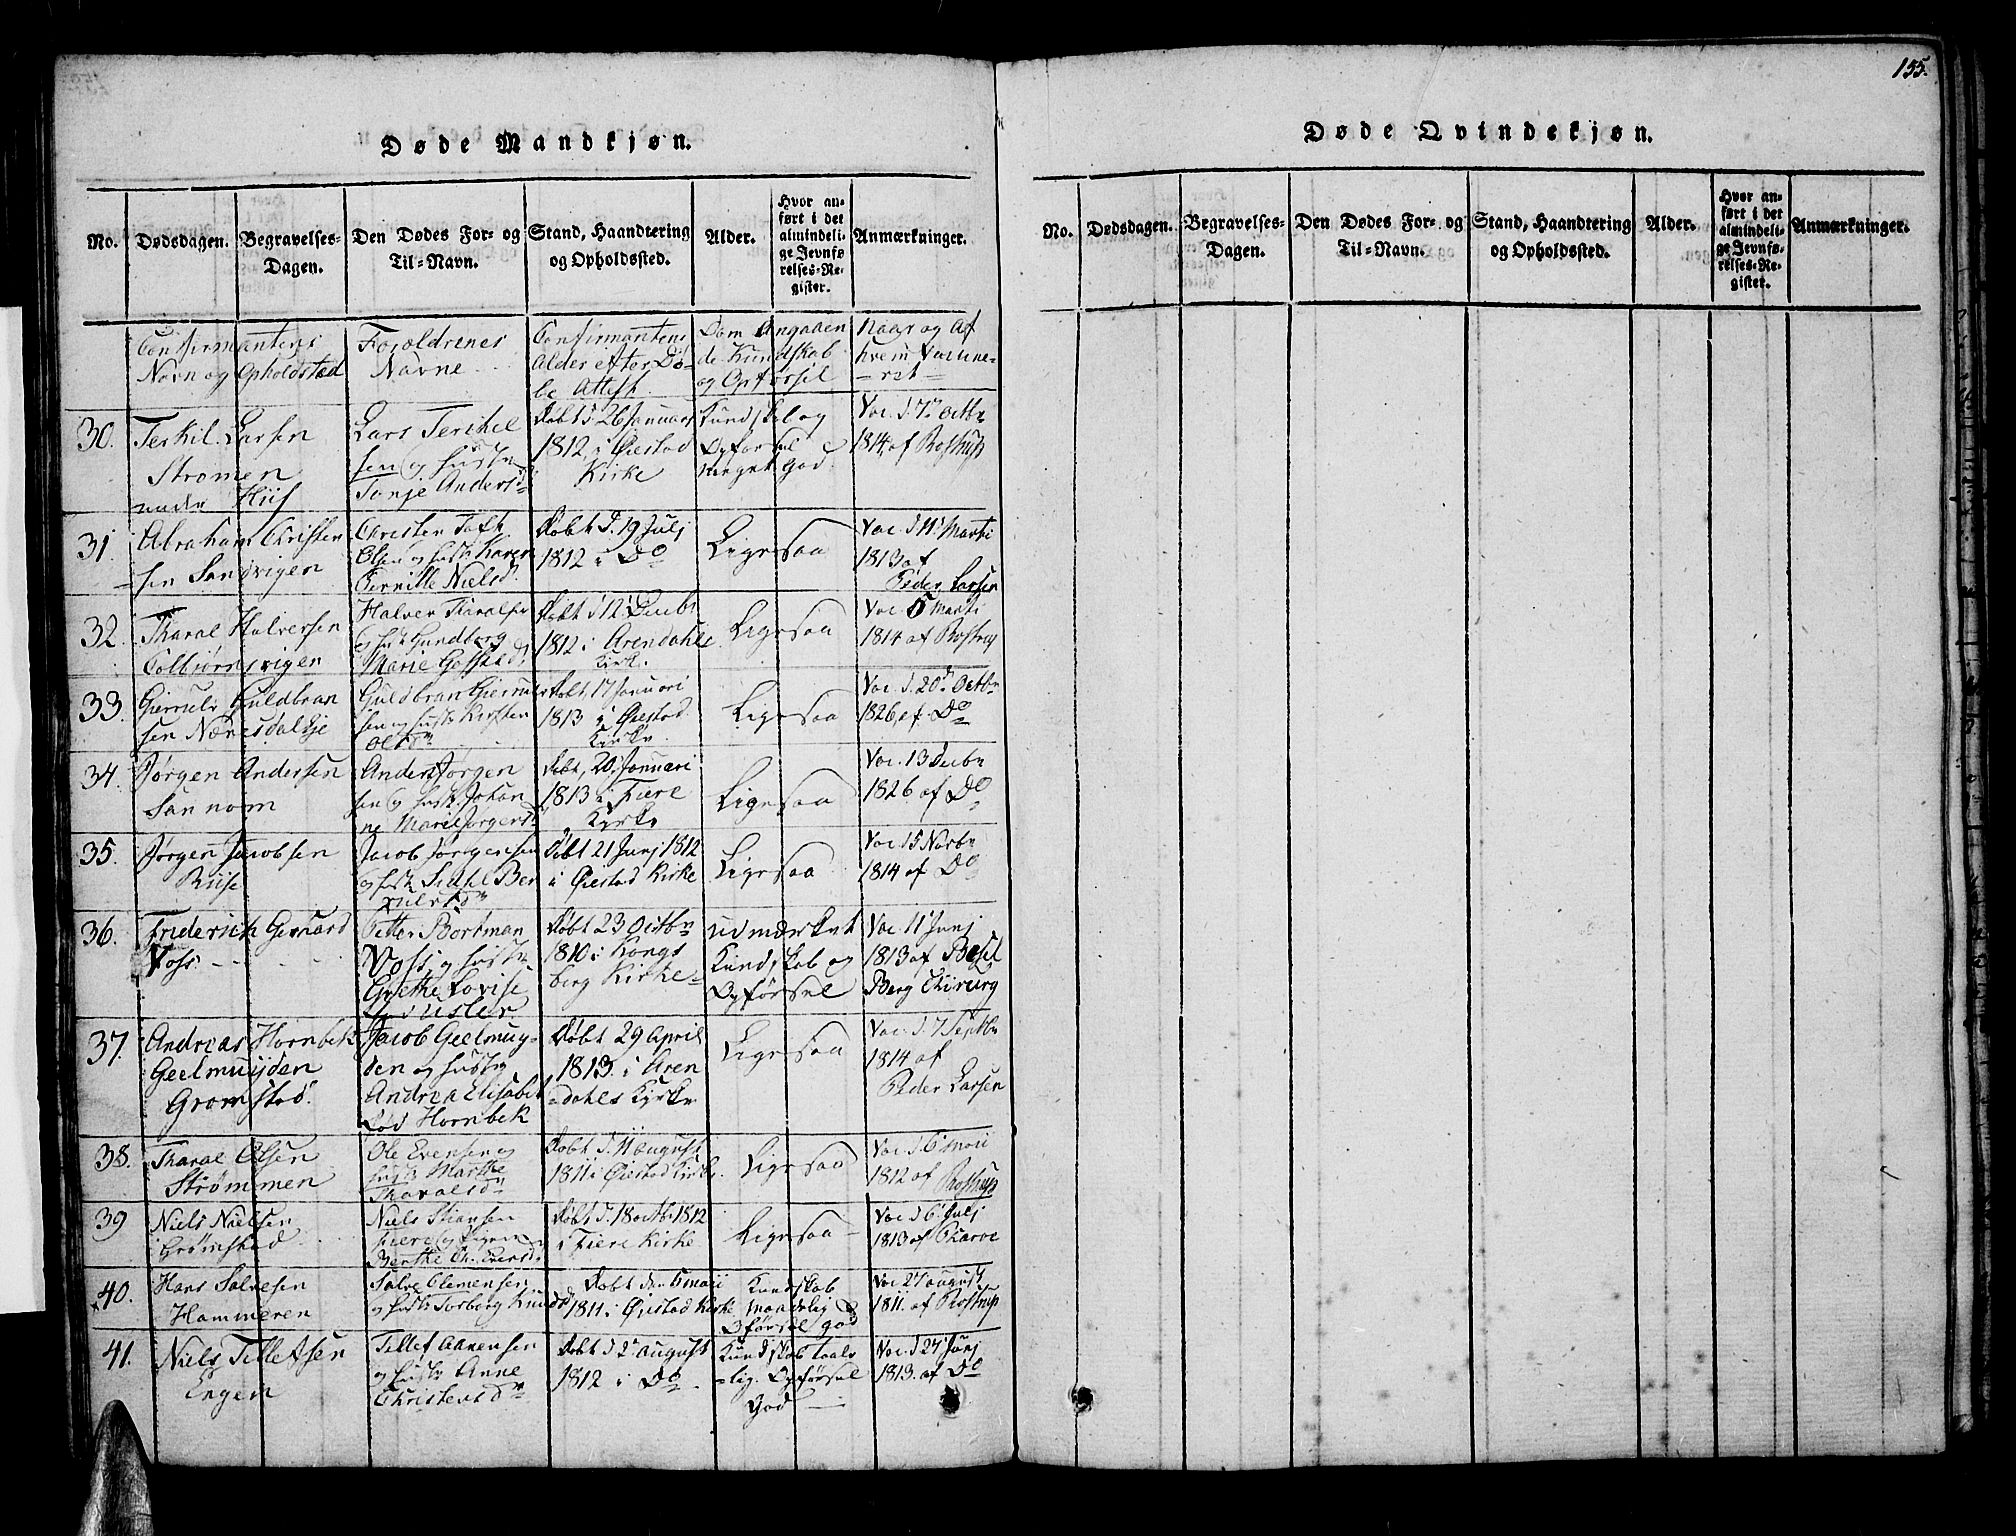 155.
Døde Mandkjøn.
No.
Dødsdagen.
Begravelses-
Dagen.
Den Dødes For- og
Til-Navn.
Stand, Haandtering
og Opholdssted.
Alder.
Hvor an-
ført i det
almindeli-
ge Jevnfø-
relses-Re-
gister.
Anmærkninger.
Confirmantens
Navn og Opholdsted
Forældrenes
Navne
Confirmantens
Alder efter Dø-
be Attest
Dom Angaaen
de Kundskab
og Opførsel
Naar og Af
hvem Vaccine-
= ret =
30.
Terkil Larsen
Strømen
under Hiis
Lars Terchel
sen og hustr
Tonje Andersd
døbt d. 26 Januar
1812, i Øiestad
Kirke
Kundskab og
Opførsel
meget God
Vac. d. 7de Octbr
1814, af Rostrup
31.
Abraham Christen
sen Sandvigen
Christen Toft
Olsen og hustr Karen
Pernille Nielsd.
døbt d. 19 Julj
1812 i Do
Ligesaa
Vac. d. 11 Marti
1813 af
Peder Larsen
32.
Tharal Halversen
Colbjørnsvigen
Halver Tharalsen
og hust Gundborg
Marie Gofstad
døbt d. 12 Decbr
1812 i Arendahls
Kirk.
Ligesaa
Vac. 5 Marti
1814 af Rostrup
33.
Gierruls Guldbran
sen Nænesdalseje
Guldbran Gierruls
sen og hustr Kirsten
Olsdr
døbt, 17 Januari
1813 i Øiestad
Kirke
Ligesaa
Vac. d. 20d Octbr
1826, af Do
34.
Jørgen Andersen
Sannom
Anders Jørgen
sen og hustr Johan
ne Marie Jørgensd
døbt, 20 Januari
1813 i Fiere
Kyrke
Ligesaa
Vac. 13 Decbr
1826 af Do
35.
Jørgen Jacobsen
Riise
Jacob Jørgensen
og hustr Sidsel Ber
døbt 21 Junj 1812
i Øiestad Kirke
Ligesaa
Vac 15 Novbr
1814 af Do
36.
Friderich Gerhard
Voss.
Petter Bortman
Voss og hustr
Grethe Lovise
døbt 23 Octbr
1810 i Kongs
berg Kirke=
udmærket
Kundskab og
Opførsel
Vac. 11 Junj
1813 af Besel
Berg Chirurg
37.
Andreas Hornbek
Geelmuijden
Gromstad.
Jacob Geelmuy-
den og hustr
Andrea Elisabet
fød Hornbek
døbt 29 April
1813. i Aren
=dahls Kyrke
Ligesaa
Vac. d. 7 Septbr
1814 af
Peder Larsen
38.
Tharal Olsen
Strømmen
Ole Evensen og
hustr Marthe
Tharalsdr
døbt d. 11 august
1811 i Øiestad Kirke.
Ligesaa
Vac. d 6 Maii
1812 af Rostrup
39
Niels Nielsen
Grømstad
Niels Stiansen
Fiere og Pigen
Berthe Ch. Evensd.
døbt d. 18 octb. 1812
i Fiere Kirke
Ligesaa
Vac d 6 Julj
1813 af Tharve
40.
Hans Salvesen
Hammeren
Salve Clemensen
og hustr Torborg Knudsd
døbt den 5 maii
1811. i Øiestad Kirke
Kundskab
maadelig
Oførsel god
Vac 27 august
1811. af Rostrup
41.
Niels Tellefsen
Engen
Tellef Aanensen
og hustr Anne
Christensdr
døbt d 2 august
1812 i Do
Kundskab taale
=lig. Opførsel
God
Vac. d 27 Junj
1813. af Do
Døde Qvindekjøn.
No.
Dødsdagen.
Begravelses-
Dagen.
Den Dødes For- og
Til-Navn.
Stand, Haandtering
og Opholdssted.
Alder.
Hvor an-
ført i det
almindeli-
ge Jevnfø-
relses-Re-
gister.
Anmærkninger.